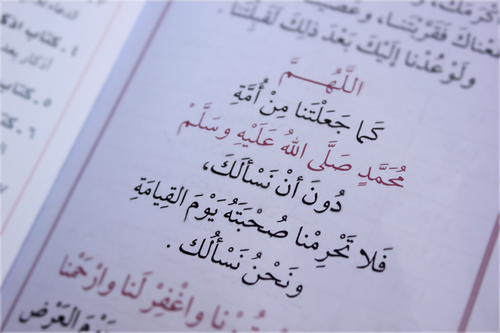 أكرمك، وعصي
عناك فقربتنا،
ولو عدنا إليك بعد ذلك لقبلتنا.
اللَّهُمَّ
كَما جَعَلْتَنا مِنْ أُمَّةِ
مُحَمَّدٍ صَلَّى اللهُ عَلَيْهِ وسَلَّمْ
دُونَ أَنْ نَسْأَلَكَ،
فَلا تَحْرِمْنا صُحْبَتَهُ يَوْمَ القِيامَةِ
وَنَحْنُ نَسْأَلُك .
وَاغْفِرْ لَنا وارْحَمْنا
يَوْمَ العَرْضِ
٤. كتاب
٥. كتاب
٦. كتاب